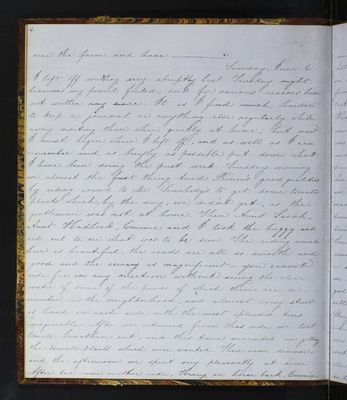 4
over the farm and home
Sunday, June 6.
I left off writing very abruptly last Tuesday night,
because my pencil failed, and for various reasons have
not written any since. It is I find much harder
to keep a journal or anything else regularly while
away visiting than when quietly at home, but now
I must begin where I left off and as well as I can
remember and as briefly as possible put down what
I have been doing the past week. Wednesday morning
we almost the first thing tried Prince's good qualities
by riding round to Mr. Somebody's to get some tomato
plants which, by the way, we didn't get, as the
gentleman was not at home. Then Aunt Sarah,
Aunt Haddock, Commie and I took the buggy and
rode out to see what was to be seen. The riding round
here is beautiful, the roads are all so smooth and
good and the scenery is magnificent. You cannot
ride far in any direction without seeing the clear
water of some of the ponds of which there are a
number in the neighborhood, and almost every street
is lined on each side with the most splendid trees
imaginable. After we returned from this ride we took
Uncle Jonathan out, and this time succeeded in getting
the tomato plants which were wanted. Then came dinner,
and the afternoon we spent very pleasantly at home.
After tea came another ride, Henry on horse back, Commie